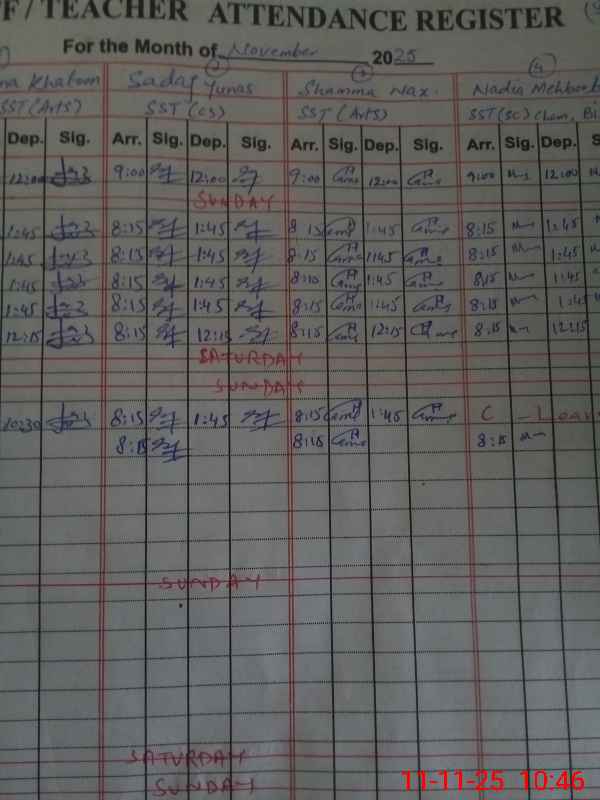 F / TEACHER ATTENDANCE REGISTER
For the Month of November 2025
na Khatoon Sadaf Yunas Shamma Naz. Nadia Mehboob
SST (Arts) SST (CS) SST (Arts) SST (SC) Chem, Bi
Dep. Sig. Arr. Sig. Dep. Sig. Arr. Sig. Dep. Sig. Arr. Sig. Dep. S
12:00 9:00 12:00 9:00 12:00 9:00 12:00
SUNDAY
1:45 8:15 1:45 8:15 1:45 8:15 1:45
1:45 8:15 1:45 8:15 1:45 8:15 1:45
1:45 8:15 1:45 8:10 1:45 8:15 1:45
1:45 8:15 1:45 8:15 1:45 8:15 1:45
12:15 8:15 12:15 8:15 12:15 8:15 12:15
SATURDAY
SUNDAY
10:30 8:15 1:45 8:15 1:45 C - Leav
8:15 8:15 8:15
SUNDAY
SATURDAY
SUNDAY
11-11-25 10:46